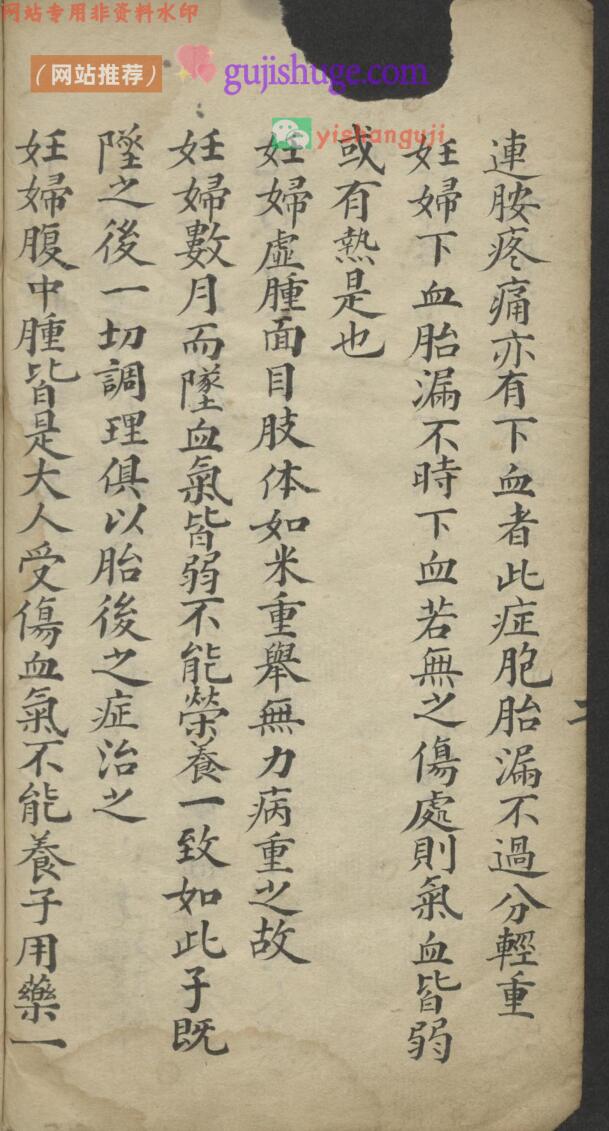 网站专用非资料水印
（网站推荐）
gujishuge.com
yishanguji
連胺疼痛亦有下血者此症胞胎漏不過分輕重
妊婦下血胎漏不時下血若無之傷處則氣血皆弱
或有熱是也
妊婦虛腫面目肢体如米重舉無力病重之故
妊婦數月而墜血氣皆弱不能榮養一致如此子既
墜之後一切調理俱以胎後之症治之
妊婦腹中腫皆是大人受傷血氣不能養子用藥一